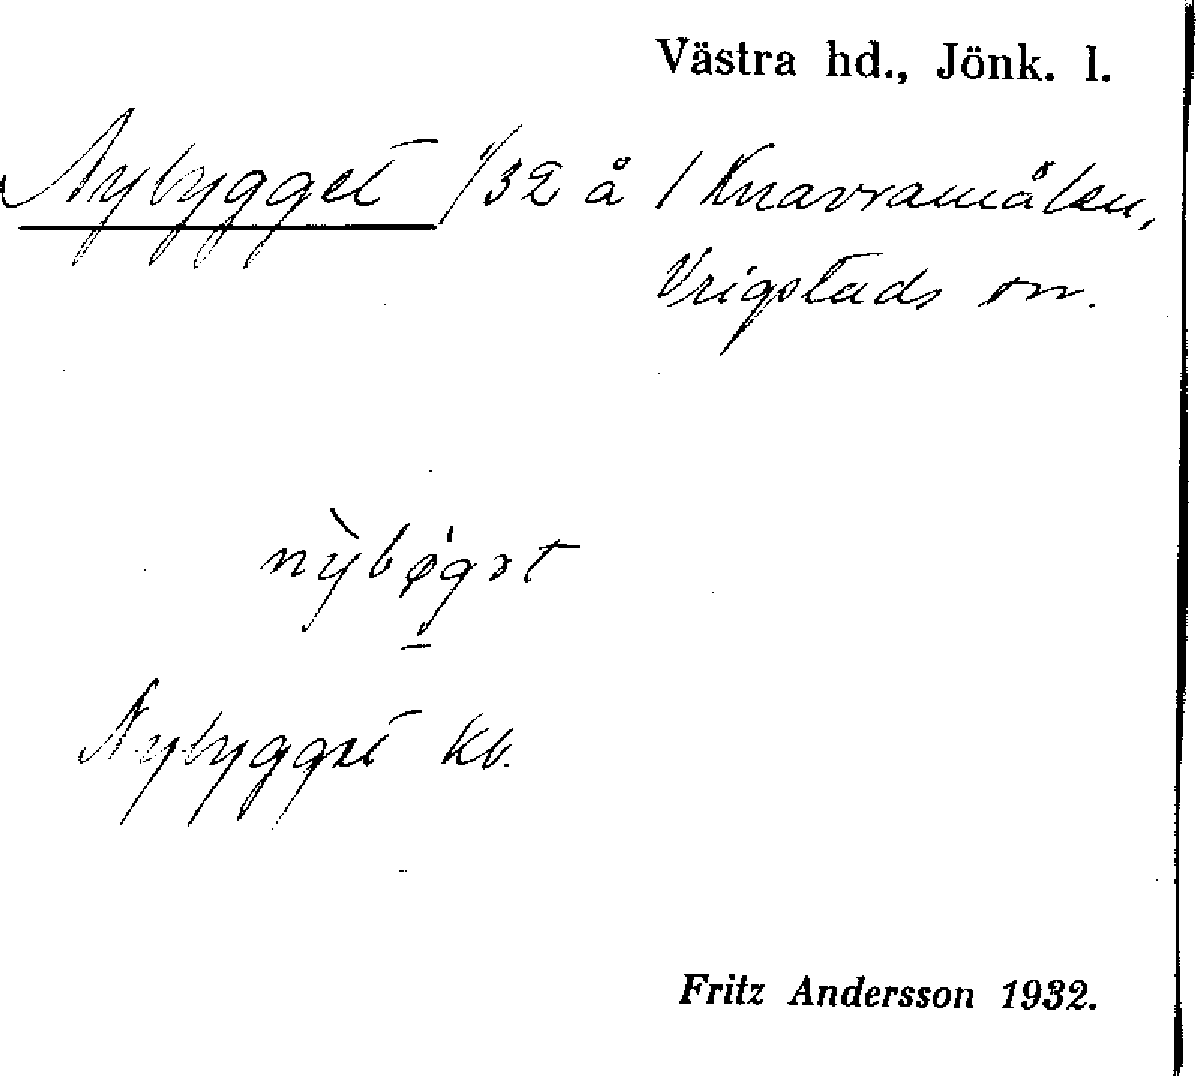 Västra hd., Jönk. l.
Nybygget 1/32 å 1 Knavramålen,
Vrigstads sn.
nỳbø̀gət
Nybygget kb.
Fritz Andersson 1932.